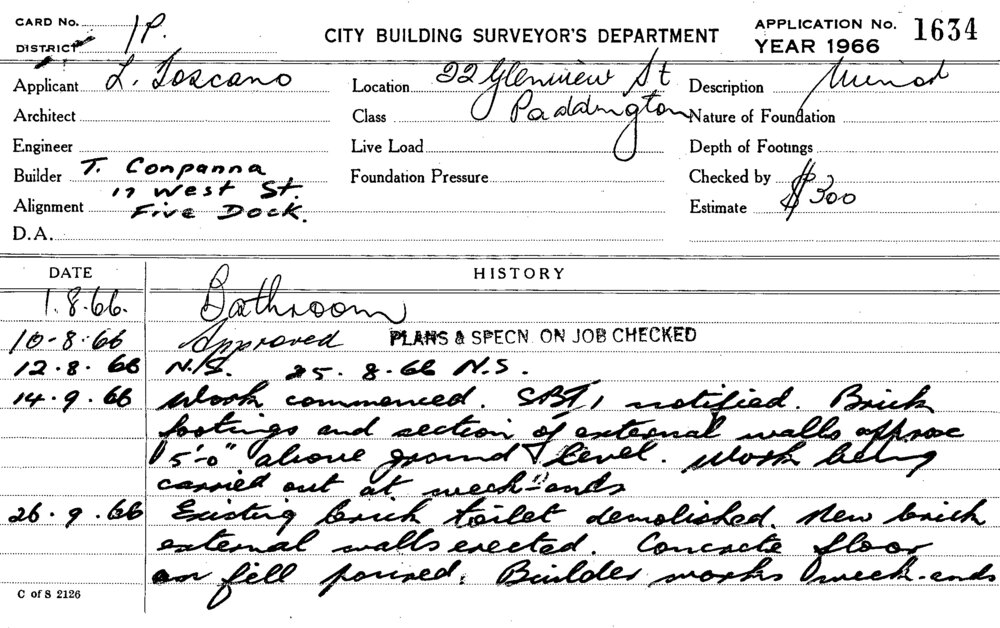 CARD No. 1P.
DISTRICT
CITY BUILDING SURVEYOR'S DEPARTMENT
APPLICATION No. 1634
YEAR 1966
Applicant L. Toscano
Location 22 Glenview St
Description Minor
Architect
Class Paddington
Nature of Foundation
Engineer
Live Load
Depth of Footings
Builder T. Conpanna
Foundation Pressure
Checked by
17 West St.
Alignment Five Dock.
Estimate $300
D.A.
DATE HISTORY
1.8.66. Bathroom
10-8-66 Approved PLANS & SPECN ON JOB CHECKED
12.8.66 N.S. 25.8.66 N.S.
14.9.66 Work commenced. notified. Brick
footings and section of external walls approx
5'-0" above ground level. Work being
carried out at week-ends
26.9.66 Existing brick toilet demolished. New brick
external walls erected. Concrete floor
on fill poured. Builder works week-ends
C of S 2126